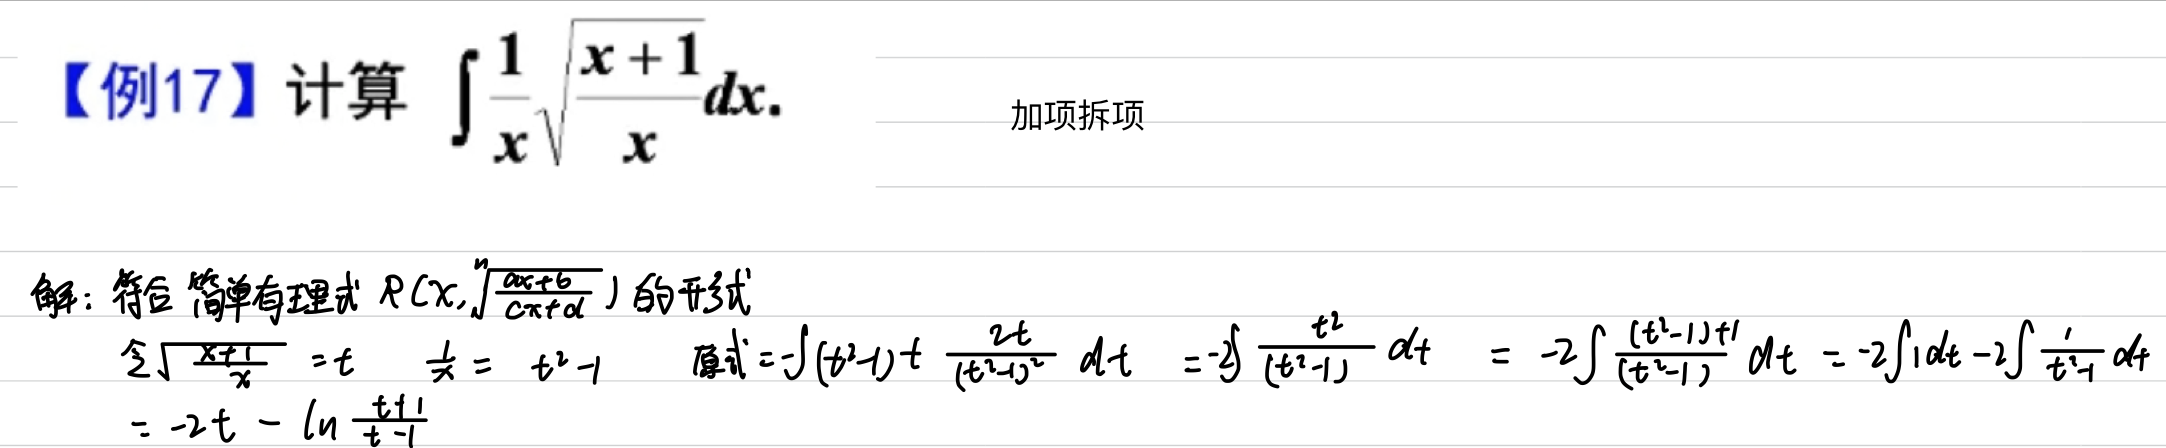 【例17】计算 ∫ 1/x √((x+1)/x) dx.
加项拆项
解：符合 简单有理式 R(x, ⁿ√((ax+b)/(cx+d))) 的形式
令 √((x+1)/x) = t 1/x = t²-1 原式 = -∫(t²-1)t 2t/(t²-1)² dt = -2∫ t²/(t²-1) dt = -2∫ ((t²-1)+1)/(t²-1) dt = -2∫1dt -2∫ 1/(t²-1) dt
= -2t - ln (t+1)/(t-1)